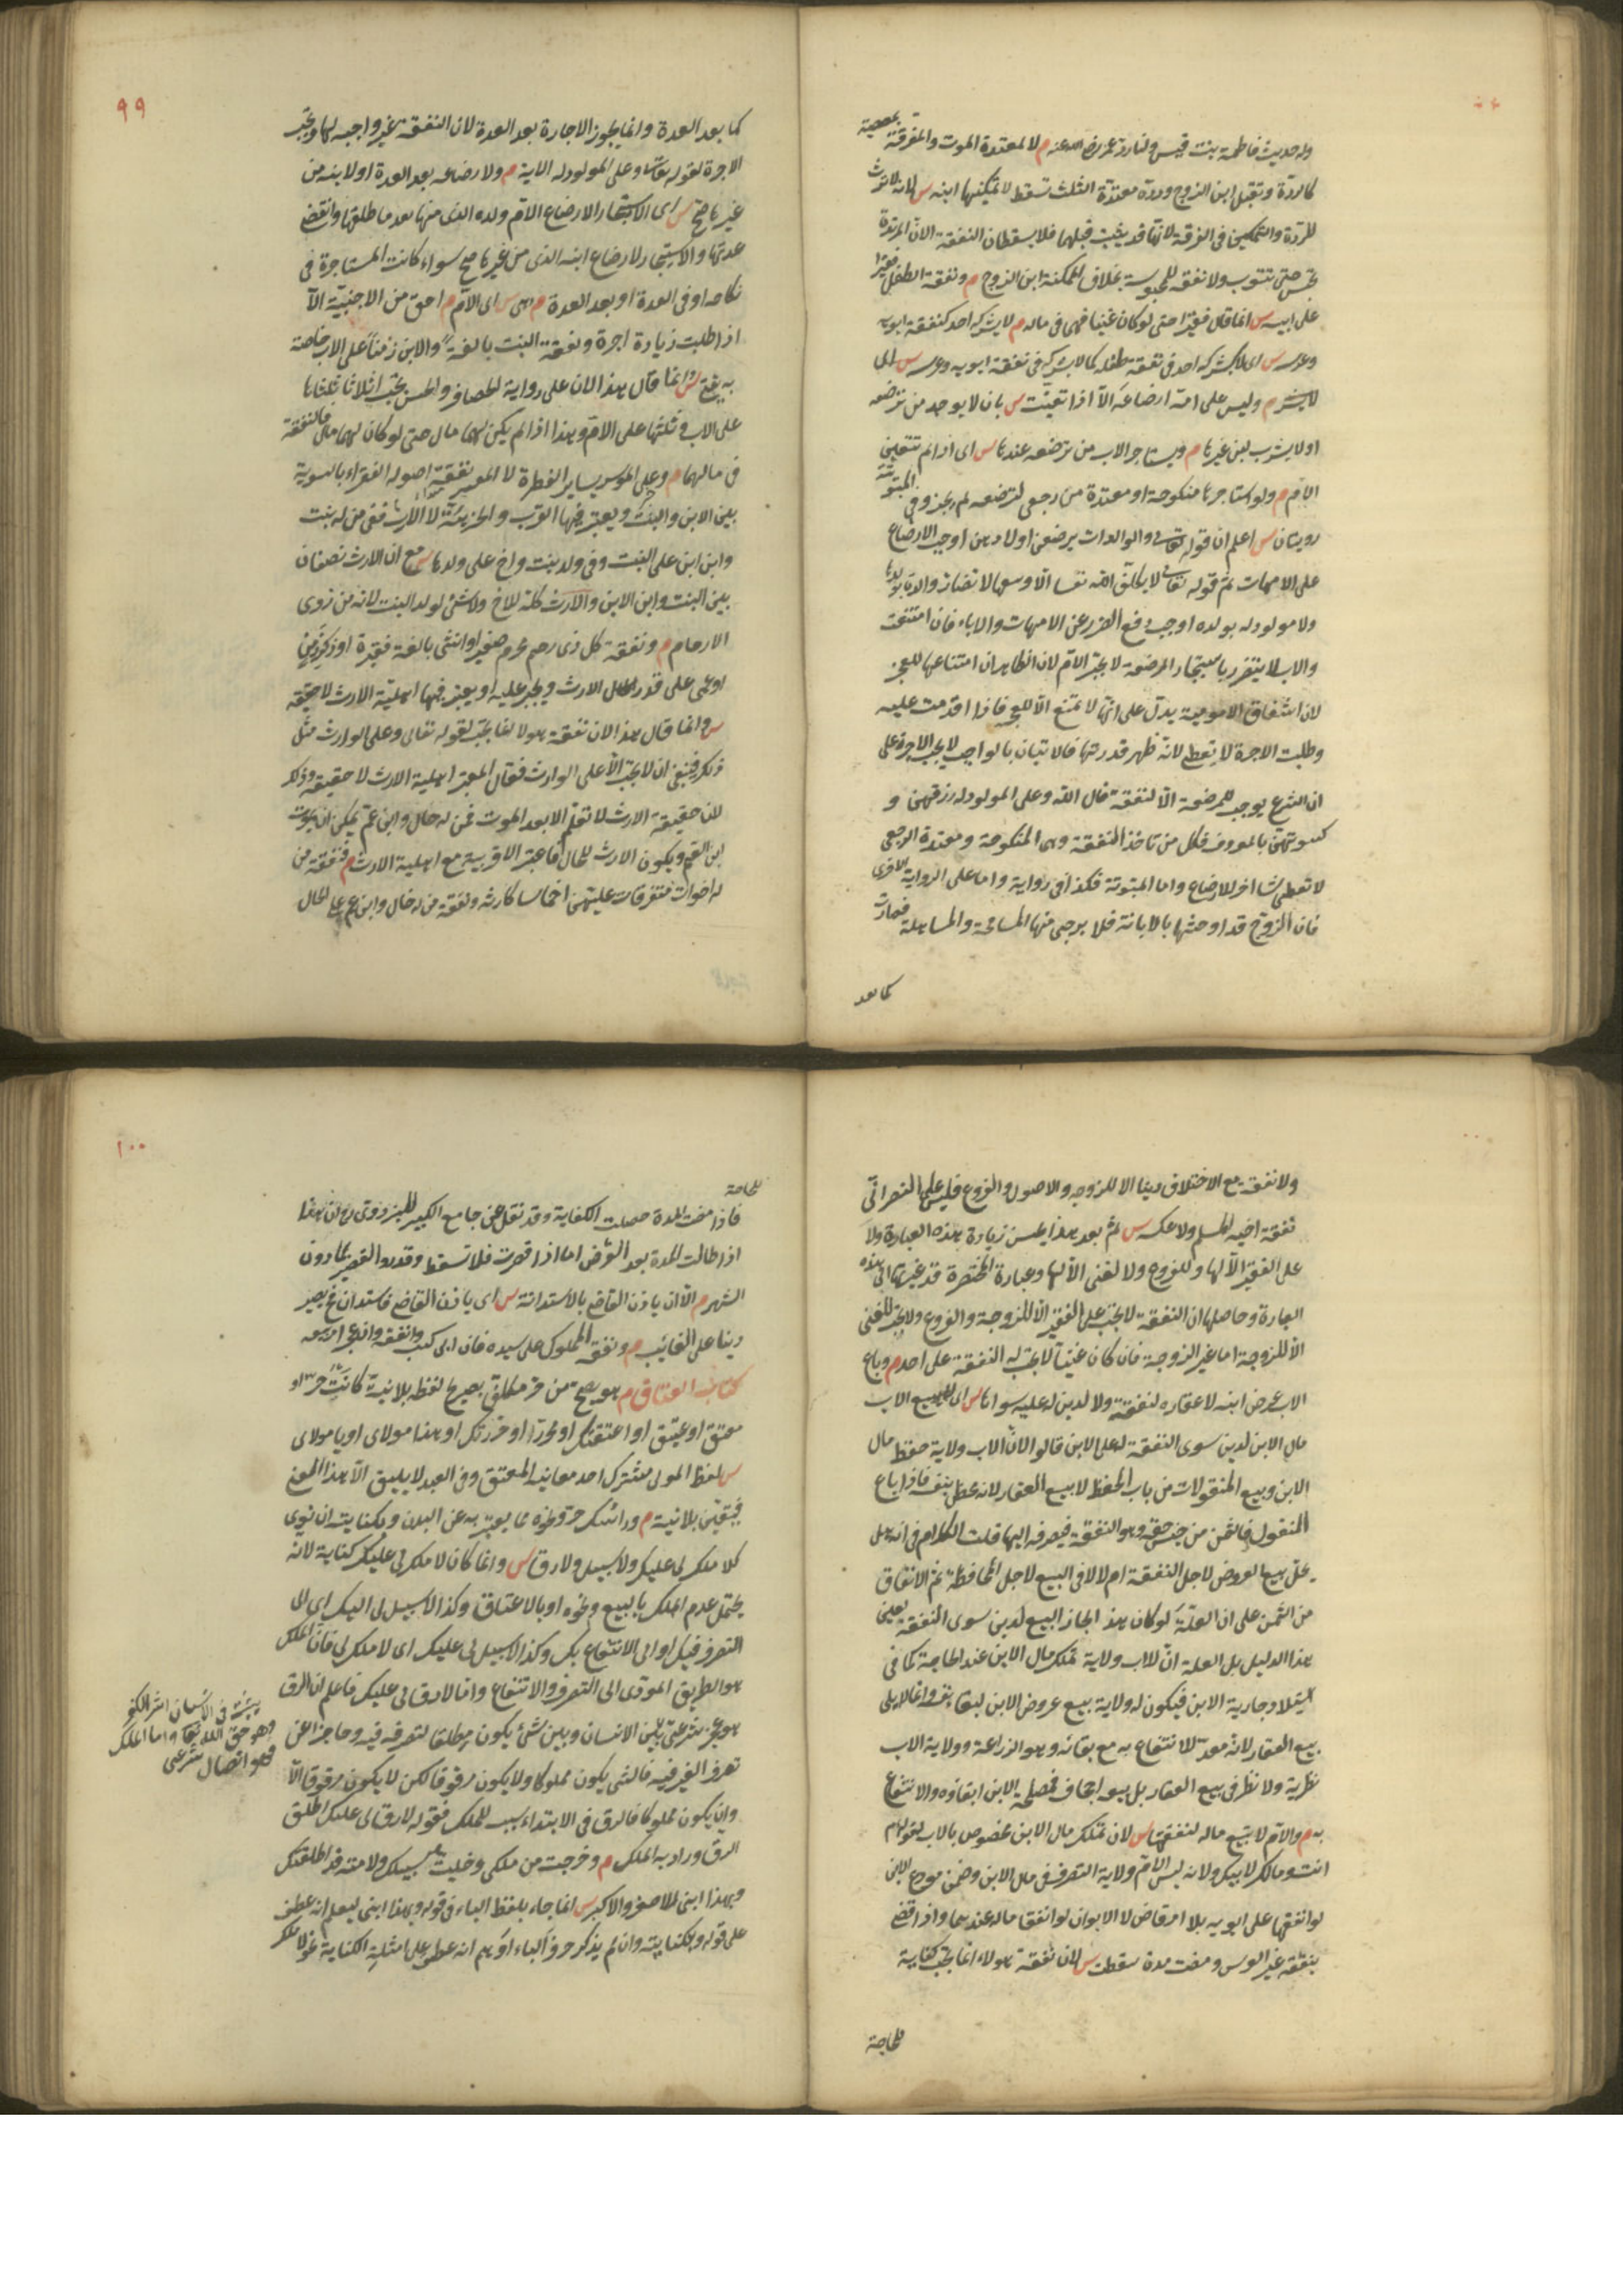 وله حديث فاطمة بنت قيس ولنا رد عمر رضى الله عنه م لا لمعتدة الموت والمفرقة بمعصية
كالردة وتقبيل ابن الزوج وردة معتدة الثلث تسقط لا تمكينها ابنه س لانه لا اثر
للردة والتمكين فى الفرقة لانها قد يثبت قبلهما فلا يسقطان النفقة الا ان المرتدة
تحبس حتى تتوب ولا نفقة للمحبوسة بخلاف الممكنة ابن الزوج م ونفقة الطفل فقيرا
على ابيه س انما قال فقيرا حتى لو كان غنيا فهى فى ماله م لا يشركه احد كنفقة ابويه
وعرسه س اى لا يشركه احد فى نفقة طفله كما لا يشركه فى نفقة ابويه وعرسه س اى
لا يشرك م وليس على امه ارضاعه الا اذا تعينت س بان لا يوجد من ترضعه
او لا يشرب لبن غيرها م ويستاجر الاب من ترضعه عندها س اى اذا لم تتعين
الام م ولو استاجرها منكوحة او معتدة من رجعى لترضعه لم يجز وفى المبتوتة
روايتان س اعلم ان قوله تعالى والوالدات يرضعن اولادهن اوجب الارضاع
على الامهات ثم قوله تعالى لا يكلف الله نفسا الا وسعها لا تضار والدة بولدها
ولا مولود له بولده اوجب دفع الضرر عن الامهات والاباء فان امتنعت
والاب لا يتضرر باستيجار المرضعة لا يجبر الام لان الظاهر ان امتناعها للعجز
لان اشفاق الامومية يدل على انها لا تمتنع الا للعجز فاذا اقدمت عليه
وطلبت الاجرة لا يعطى لانه ظهر قدرتها فالاتيان بالواجب لا يجب الاجرة على
ان الشرع يوجب للمرضعة الا النفقة قال الله وعلى المولود له رزقهن و
كسوتهن بالمعروف فكل من تاخذ النفقة وهى المنكوحة ومعتدة الرجعى
لا تعطى شيئا اخر للارضاع واما المبتوتة فكذا فى رواية واما على الرواية الاخرى
فان الزوج قد اوحشها بالابانة فلا يرجى منها المسامحة والمساهلة فصارت
كما بعد
٩٩
كما بعد العدة وانما يجوز الاجارة بعد العدة لان النفقة غير واجبه لها ويجب
الاجرة لقوله تعالى وعلى المولود له الاية م ولا رضاعه بعد العدة او لابنه من
غيرها صح س اى الاستيجار لارضاع الام ولده الذى منها بعد ما طلقها وانقضى
عدتها والاستيجار لارضاع ابنه الذى من غيرها صح سواء كانت المستاجرة فى
نكاحه او فى العدة او بعد العدة م وهى س اى الام م احق من الاجنبية الا
اذا طلبت زيادة اجرة ونفقة البنت بالغة والابن زمنا على الاب خاصة
به يفتى س وانما قال هذا لان على رواية الخصاف والحسن يجب اثلاثا ثلثاها
على الاب وثلثها على الام وهذا اذا لم يكن لهما مال حتى لو كان لهما مال فالنفقة
فى مالهما م وعلى الموسر يسار الفطرة لا المعسر نفقة اصوله الفقراء بالسوية
بين الابن والبنت ويعتبر فيها القرب والجزئية لا الارث ففى من له بنت
وابن ابن على البنت وفى ولد بنت واخ على ولدها س مع ان الارث نصفان
بين البنت وابن الابن والارث كله للاخ ولا شئ لولد البنت لانه من ذوى
الارحام م ونفقة كل ذى رحم محرم صغير او انثى بالغة فقيرة او ذكر زمن
او اعمى على قدر الارث ويجبر عليه ويعتبر فيها اهلية الارث لا حقيقته
س وانما قال هذا لان نفقة هولاء انما يجب لقوله تعالى وعلى الوارث مثل
ذلك فينبغى ان لا يجب الا على الوارث فقال المعتبر اهلية الارث لا حقيقته وذلك
لان حقيقة الارث لا تعلم الا بعد الموت فمن له خال وابن عم يمكن ان يموت
ابن العم ويكون الارث للخال فاعتبر الاقربية مع اهلية الارث م فنفقة من
له اخوات متفرقات عليهن اخماسا كارثه ونفقة من له خال وابن عم على الخال
ولا نفقة مع الاختلاف دينا الا للزوجه والاصول والفروع فليس على النصرانى
نفقة اخيه المسلم ولا عكسه س ثم بعد هذا يحسن زيادة هذه العبارة ولا
على الفقير الا لها وللفروع ولا لغنى الا لها وعبارة المختصرة قد غيرتها الى هذه
العبارة وحاصلها ان النفقة لا يجب على الفقير الا للزوجة والفروع ولا يجب للغنى
الا للزوجة اما غير الزوجة فان كان غنيا لا يجب له النفقة على احد م وباع
الاب عرض ابنه لا عقاره لنفقته ولا لدين له عليه سواها س اى لا يبيع الاب
مال الابن لدين سوى النفقة له على الابن قالوا لان للاب ولاية حفظ مال
الابن وبيع المنقولات من باب الحفظ لا بيع العقار لانه محفظ بنفسه فاذا باع
المنقول فالثمن من جنس حقه وهو النفقة فيصرفه اليها قلت الكلام فى انه هل
يحل بيع العروض لاجل النفقة ام لا لا فى البيع لاجل المحافظة ثم الانفاق
من الثمن على ان العلة لو كان هذا لجاز البيع لدين سوى النفقة بعين
هذا الدليل بل العلة ان للاب ولاية تملك مال الابن عند الحاجة كما فى
استيلاد جارية الابن فيكون له ولاية بيع عروض الابن لبقاء نفسه وانما لا يلى
بيع العقار لانه معد للانتفاع به مع بقائه وهو الزراعة وولاية الاب
نظرية ولا نظر فى بيع العقار بل بيعه اجحاف فمصلحة الابن ابقاؤه والانتفاع
به م والام لا تبيع ماله لنفقتها س لان تملك مال الابن مخصوص بالاب لقوله عم
انت ومالك لابيك ولانه ليس للام ولاية التصرف فى مال الابن وضمن مودع الابن
لو انفقها على ابويه بلا امر قاض لا الابوان لو انفقا ماله عندهما واذا قضى
بنفقة غير العرس ومضت مدة سقطت س لان نفقة هولاء انما يجب كفاية
للحاجة
١٠٠
للحاجة
فاذا مضت المدة حصلت الكفاية وقد نقل عن جامع الكبير للبزدوى رح ان هذا
اذا طالت المدة بعد الفرض اما اذا قصرت فلا تسقط وقدروا القصير بما دون
الشهر م الا ان ياذن القاضى بالاستدانة س اى ياذن القاضى فاستدان فح يصير
دينا على الغائب م ونفقة المملوك على سيده فان ابى كسب وانفق وان عجز امر ببيعه
كتاب العتاق م هو يصح من حر مكلف بصريح لفظه بلا نية كانت حر او
معتق او عتيق او اعتقتك او محررا او حررتك او هذا مولاى او يا مولاى
س لفظ المولى مشترك احد معانيه المعتق وفى العبد لا يليق الا هذا المعنى
فيعتق بلا نية م وراسك حر ونحوه مما يعبر به عن البدن وبكنايته ان نوى
كلا ملك لى عليك ولا سبيل ولا رق س وانما كان لا ملك لى عليك كناية لانه
يحتمل عدم الملك بالبيع ونحوه او بالاعتاق وكذا لا سبيل لى اليك اى الى
التصرف فيك او الى الانتفاع بك وكذا لا سبيل لى عليك اى لا ملك لى فان الملك
هو الطريق المودى الى التصرف والانتفاع واما لا رق لى عليك فاعلم ان الرق
هو عجز شرعى يثبت فى الانسان اثر الكفر
وهو حق الله تعالى واما الملك
فهو اتصال شرعى
بين الانسان وبين شئ يكون مطلقا لتصرفه فيه وحاجزا عن
تصرف الغير فيه فالشئ يكون مملوكا ولا يكون مرقوقا لكن لا يكون مرقوقا الا
وان يكون مملوكا فالرق فى الابتداء سبب للملك فقوله لا رق لى عليك اطلق
الرق واراد به الملك م وخرجت من ملكى وخليت سبيلك ولامته قد اطلقتك
وبهذا ابنى للاصغر والاكبر س انما جاء بلفظ الباء فى قوله وبهذا ابنى ليعلم انه عطف
على قوله وبكنايته وان لم يذكر حرف الباء اوهم انه عطف على امثلة الكناية نحو لا ملك